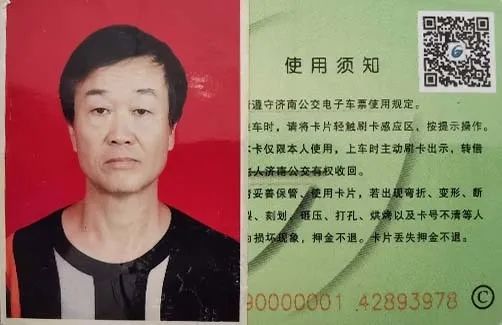 使用须知
遵守济南公交电子车票使用规定。
车时，请将卡片轻触刷卡感应区，按提示操作。
卡仅限本人使用，上车时主动刷卡出示，转借
人济南公交有权收回。
妥善保管、使用卡片，若出现弯折、变形、断
、刻划、碾压、打孔、烘烤以及卡号不清等人
损坏现象，押金不退。卡片丢失押金不退。
90000001 42893978 ©